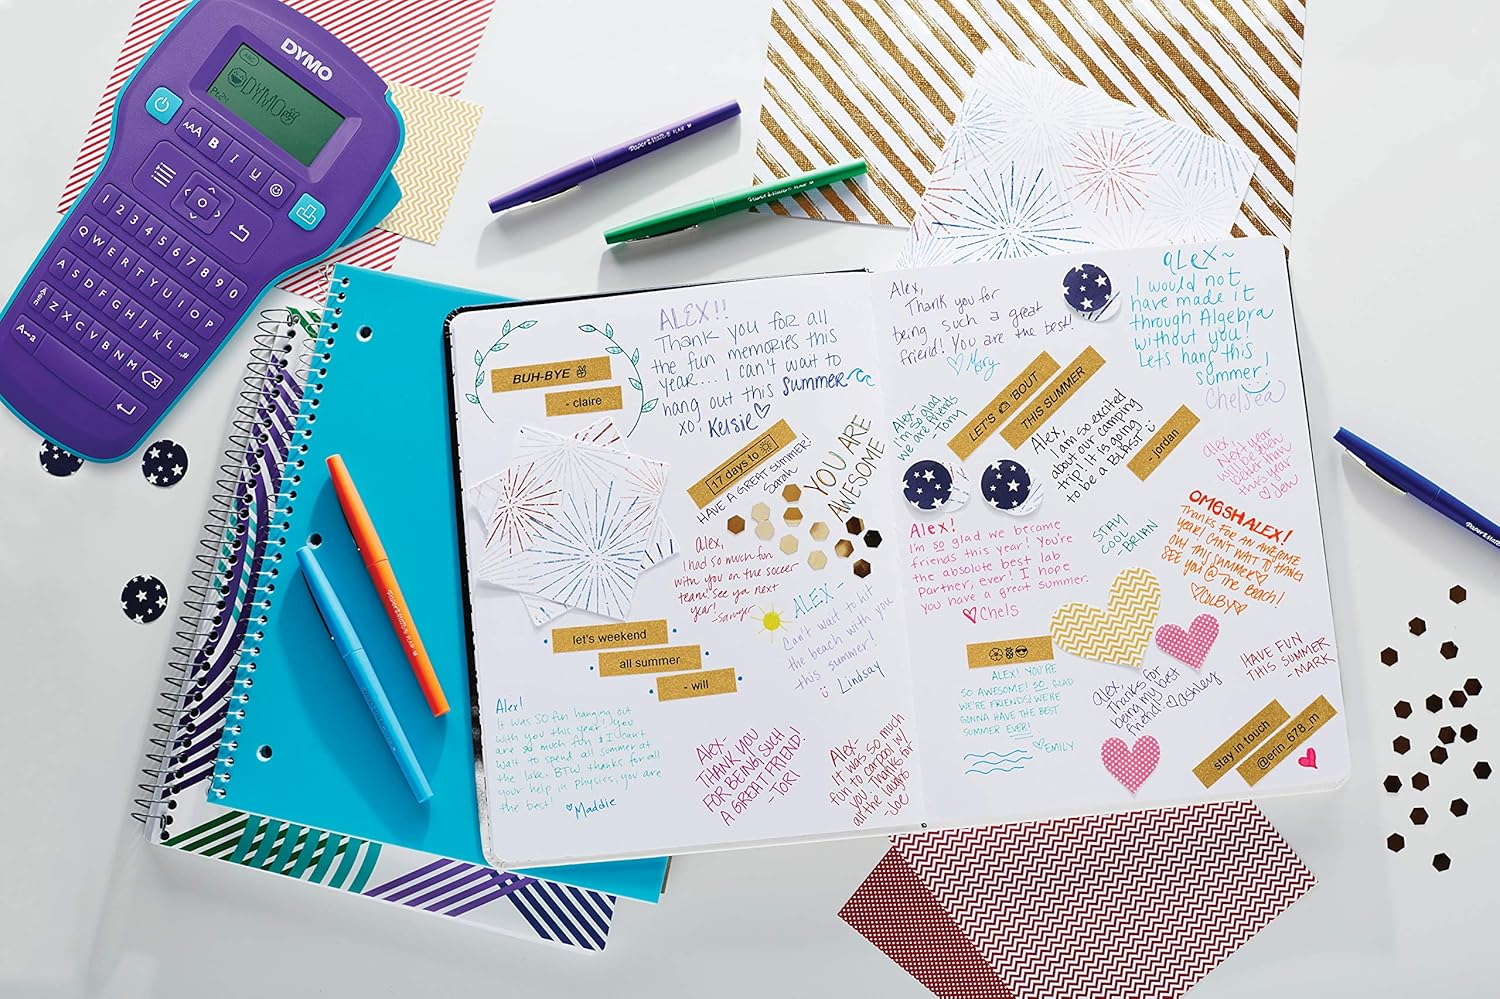 DYMO
ABC
DYMO
Pr24
AAA
B I U
1 2 3 4 5 6 7 8 9 0
Q W E R T Y U I O P
A S D F G H J K L
Z X C V B N M
A↔a
Paper Mate® FLAIR
BUH-BYE ✌
- claire
ALEX!!
Thank you for all
the fun memories this
year.... I can't wait to
hang out this summer
xo! Kelsie♡
17 days to ☀
HAVE A GREAT SUMMER!
Sarah
YOU ARE
AWESOME
Alex,
I had so much fun
with you on the soccer
team! See ya next
year!
-Sawyer
ALEX -
Can't wait to hit
the beach with you
this summer!
Lindsay
let's weekend
all summer
- will
Alex!
It was SO fun hanging out
with you this year! You
are so much fun & I can't
wait to spend all summer at
the lake. BTW thanks for all
your help in Physics, you are
the best! ♡Maddie
Alex-
THANK YOU
FOR BEING SUCH
A GREAT FRIEND!
-TORI
Alex-
It was so much
fun to carpool w/
you. Thanks for
all the laughs
-Joe
Alex,
Thank you for
being such a great
friend! You are the best!
♡Mary
aLEX~
I would not
have made it
through Algebra
without you!
Let's hang this
summer!
Chelsea
Alex-
I'm so glad
we are friends
-Tony
LET'S 'BOUT
THIS SUMMER
Alex,
I am so excited
about our camping
trip! It is going
to be a BLAST
- jordan
alex
Next year
Won't be
this year
♡ Jaw
Alex!
I'm so glad we became
friends this year! You're
the absolute best lab
Partner, ever! I hope
you have a great summer.
♡Chels
STAY
COOL!
BRIAN
OMGSHALEX!
Thanks for an awesome
year! Can't wait to hang
out this summer♡
See you @ the beach!
♡COLBY♡
ALEX! YOU'RE
SO AWESOME! SO GLAD
WE'RE FRIENDS! WE'RE
GONNA HAVE THE BEST
SUMMER EVER!
♡EMILY
alex,
Thanks for
being my best
friend! ♡Ashley
HAVE FUN
THIS SUMMER
-MARK
stay in touch
@erin_678_m